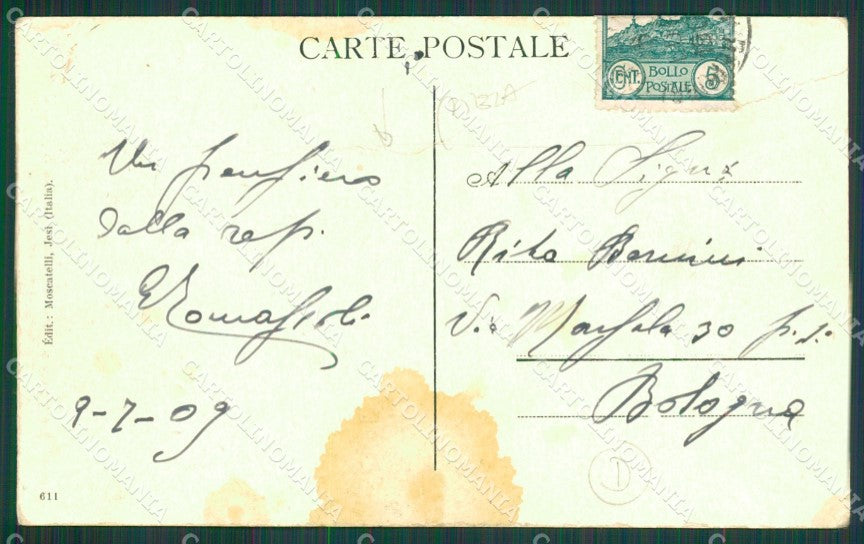 CARTE POSTALE
CENT. BOLLO POSTALE 5
Un pensiero
dalla rep.
9-7-09
Alla Sigra
Rita Bernini
Via Marsala 30 p. 1o
Bologna
D
Édit.: Moscatelli, Jesi (Italia).
611
CARTOLINOMANIA